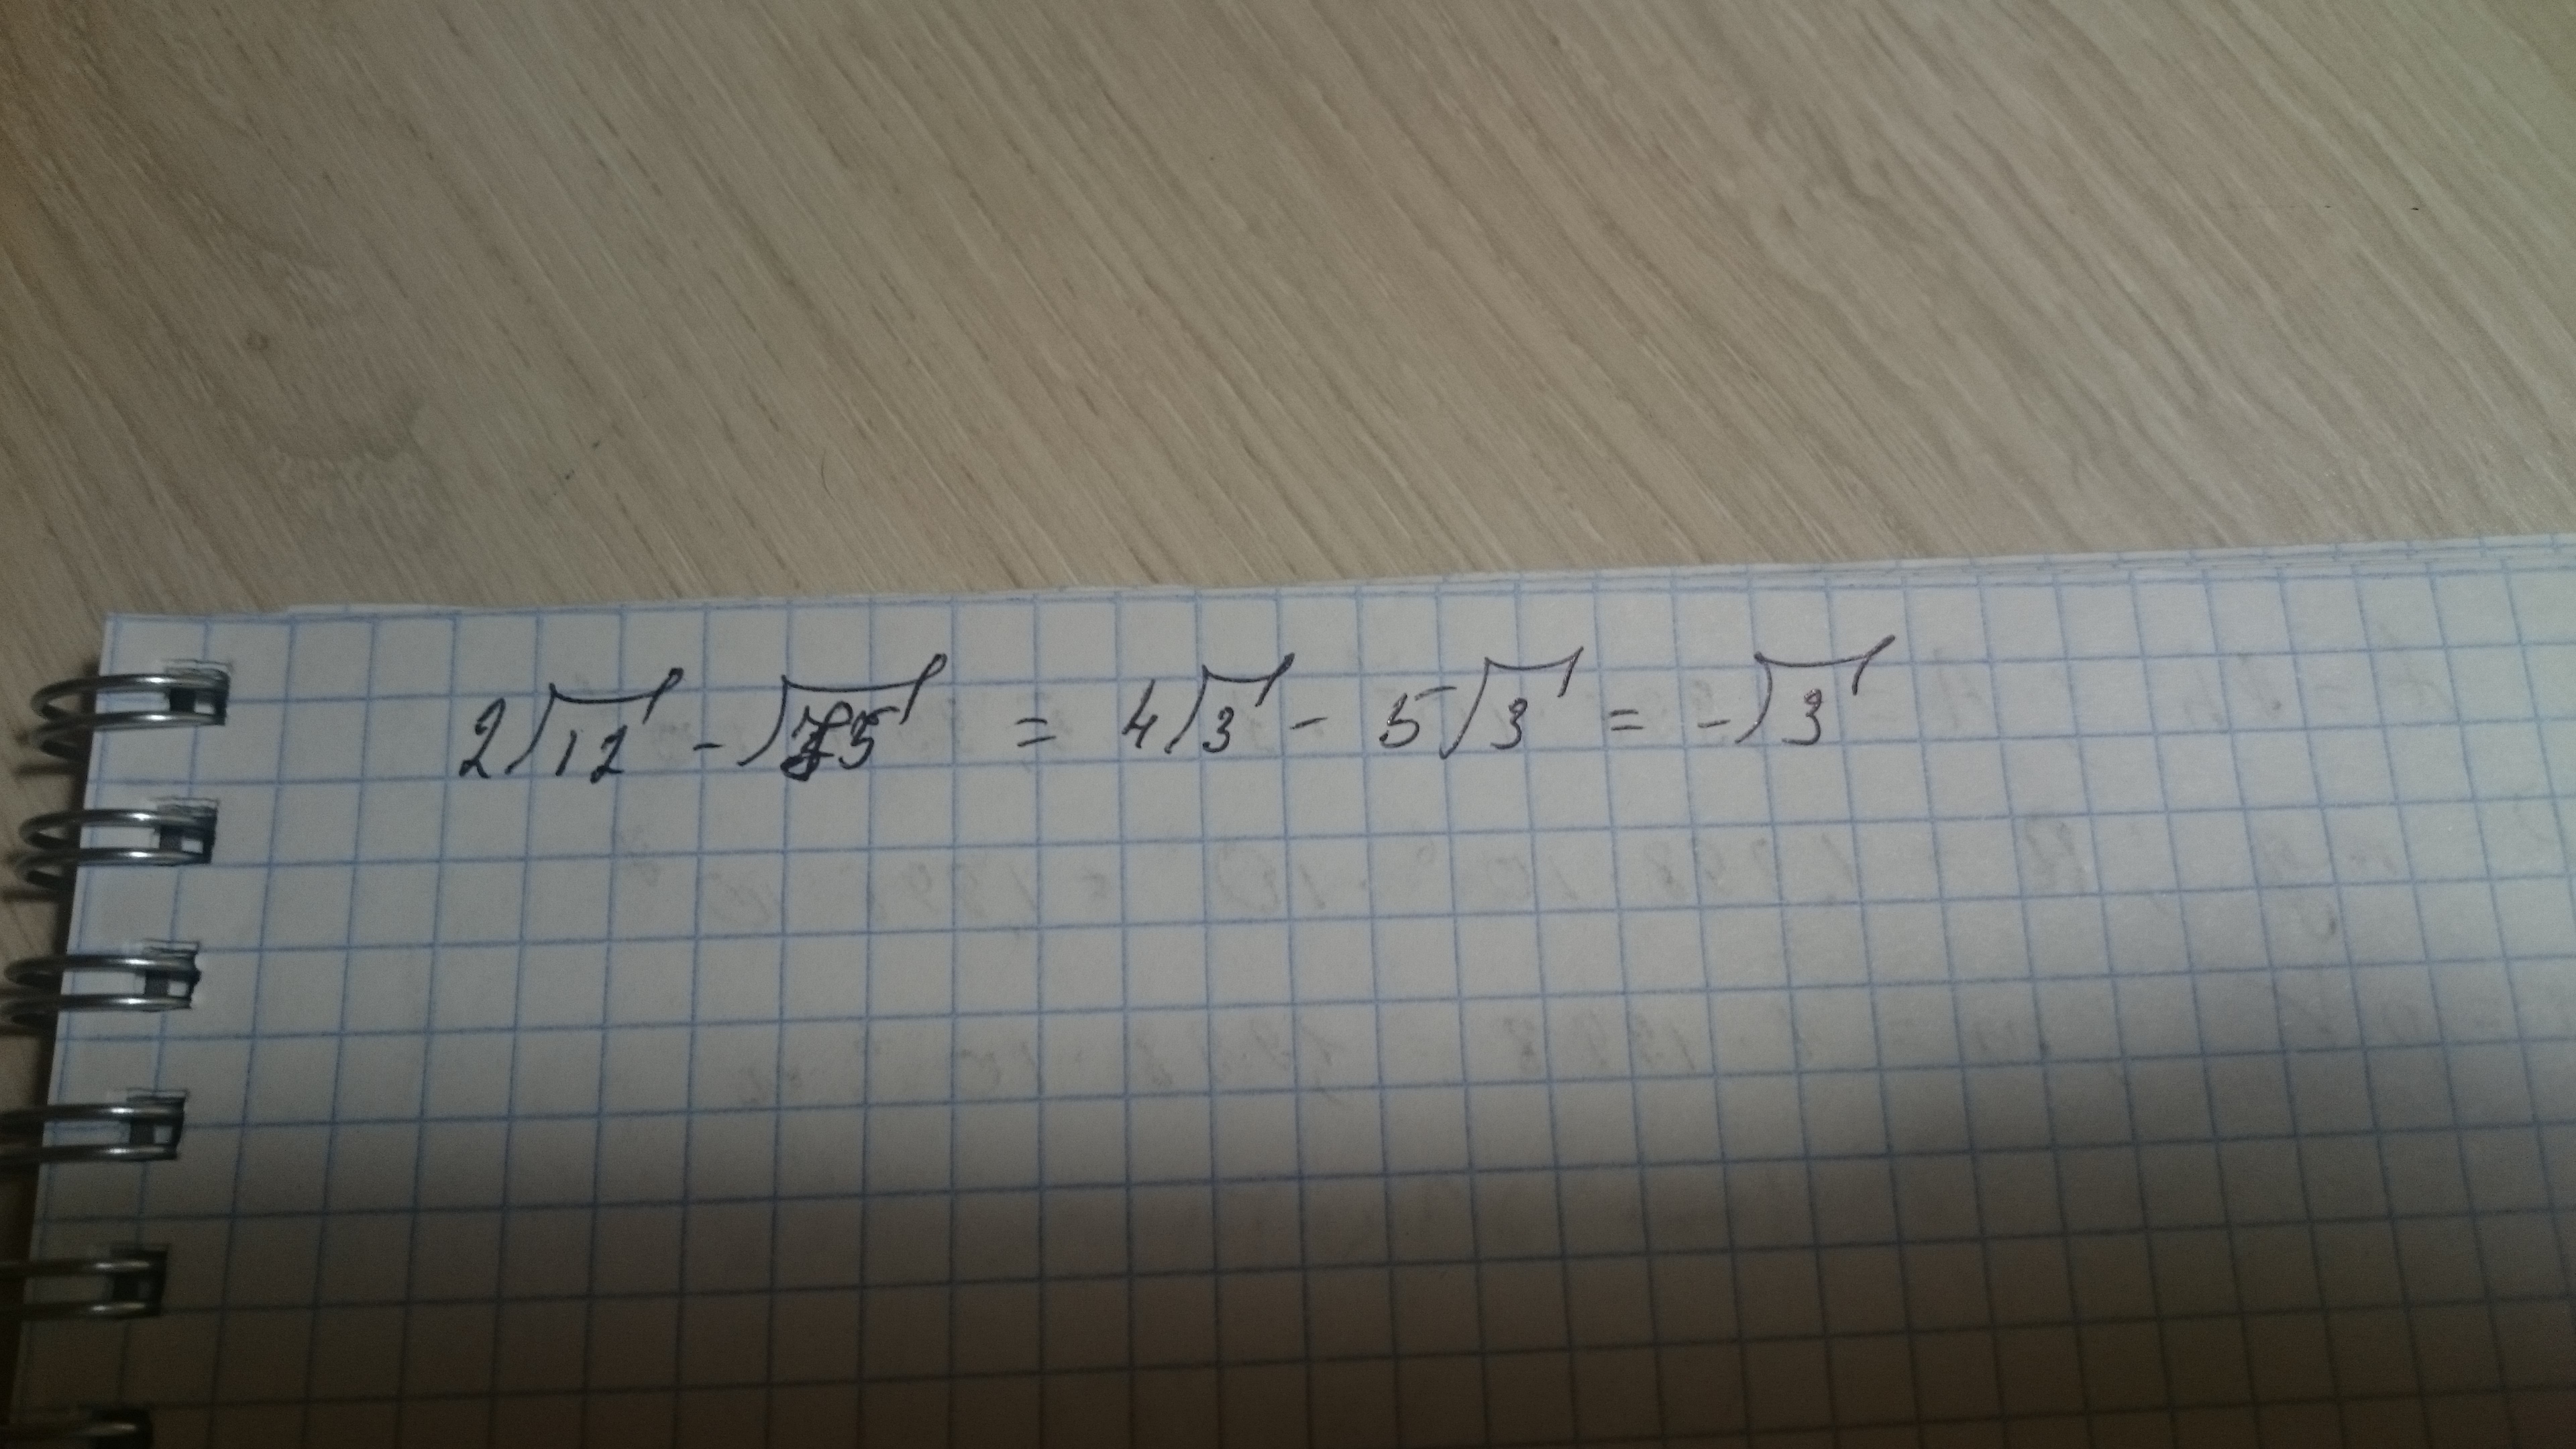 2√12 - √75 = 4√3 - 5√3 = -√3